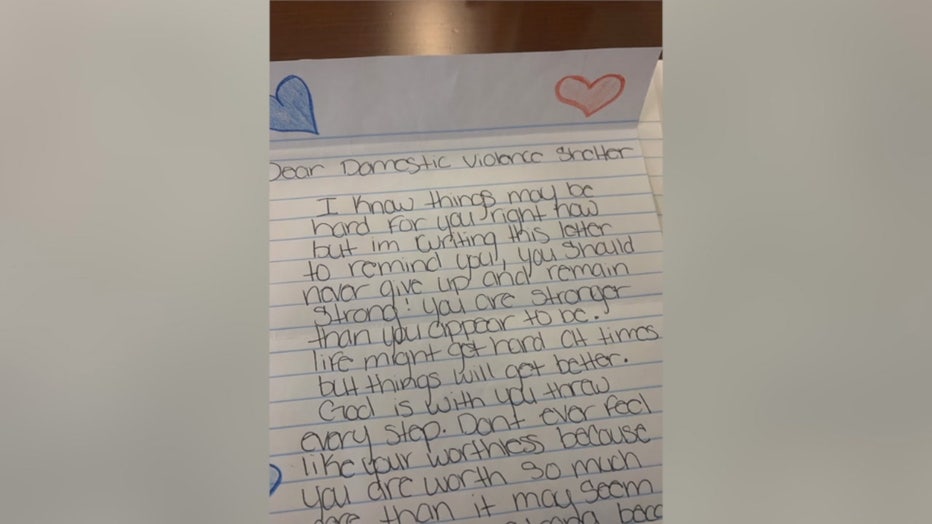 Dear Domestic Violence Shelter
I know things may be
hard for you right now
but im writing this letter
to remind you, you should
never give up and remain
strong! you are stronger
than you appear to be.
life might get hard at times
but things will get better.
God is with you threw
every step. Dont ever feel
like your worthless because
you are worth so much
than it may seem